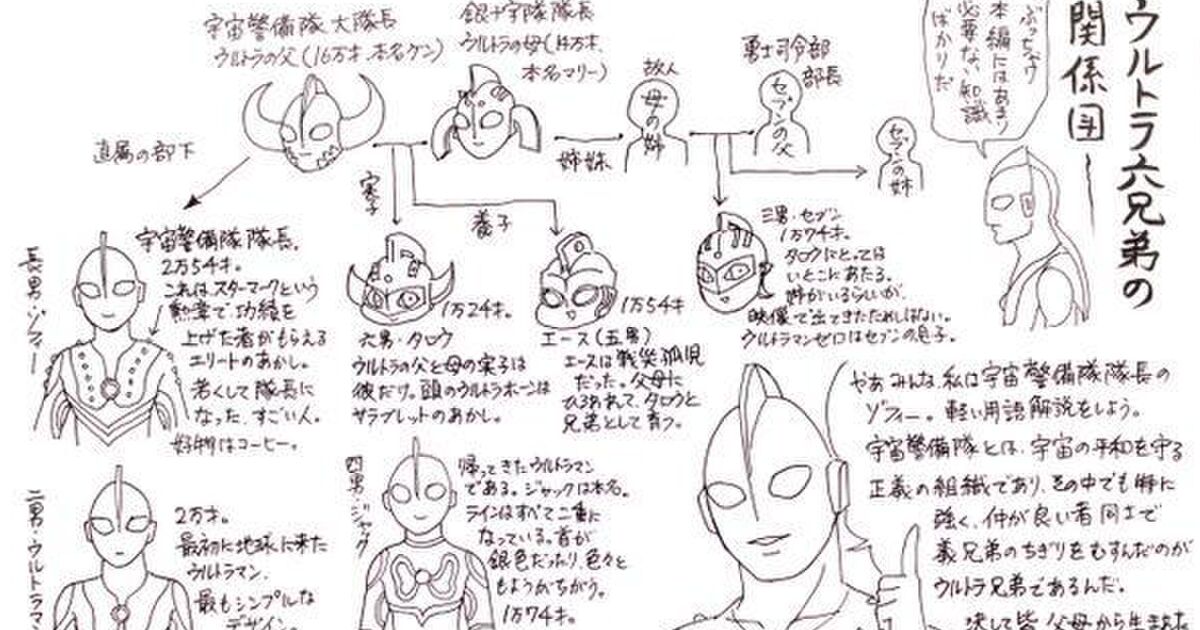 ウルトラ六兄弟の
関係図
ぶっちゃゥ
本編にはあまり
必要ない知識
ばかりだ
宇宙警備隊大隊長
ウルトラの父(16万才、本名ケン)
銀十字隊隊長
ウルトラの母(14万才、
本名マリー)
故人
母の姉
勇士司令部
部長
セブンの父
セブンの姉
姉妹
直属の部下
実子
養子
長男・ゾフィー
宇宙警備隊隊長。
2万5千才。
これはスターマークという
勲章で、功績を
上げた者がもらえる
エリートのあかし。
若くして隊長に
なった、すごい人。
好物はコーヒー。
1万2千才。
六男・タロウ
ウルトラの父と母の実子は
彼だけ。頭のウルトラホーンは
サラブレットのあかし。
1万5千才
エース(五男)
エースは戦災孤児
だった。父母に
ひろわれて、タロウと
兄弟として育つ。
三男・セブン
1万7千才。
タロウにとっては
いとこにあたる。
姉がいるらしいが、
映像で出てきたためしはない。
ウルトラマンゼロはセブンの息子。
二男・ウルトラマン
2万才。
最初に地球に来た
ウルトラマン、
最もシンプルな
デザイン。
四男・ジャック
帰ってきたウルトラマン
である。ジャックは本名。
ラインはすべて二重に
なっている。首が
銀色だったり、色々と
もようがちがう。
1万7千才。
やあみんな、私は宇宙警備隊隊長の
ゾフィー。軽い用語解説をしよう。
宇宙警備隊とは、宇宙の平和を守る
正義の組織であり、その中でも特に
強く、仲が良い者同士で
義兄弟のちぎりをむすんだのが
ウルトラ兄弟であるんだ。
決して皆、父母から生まれた